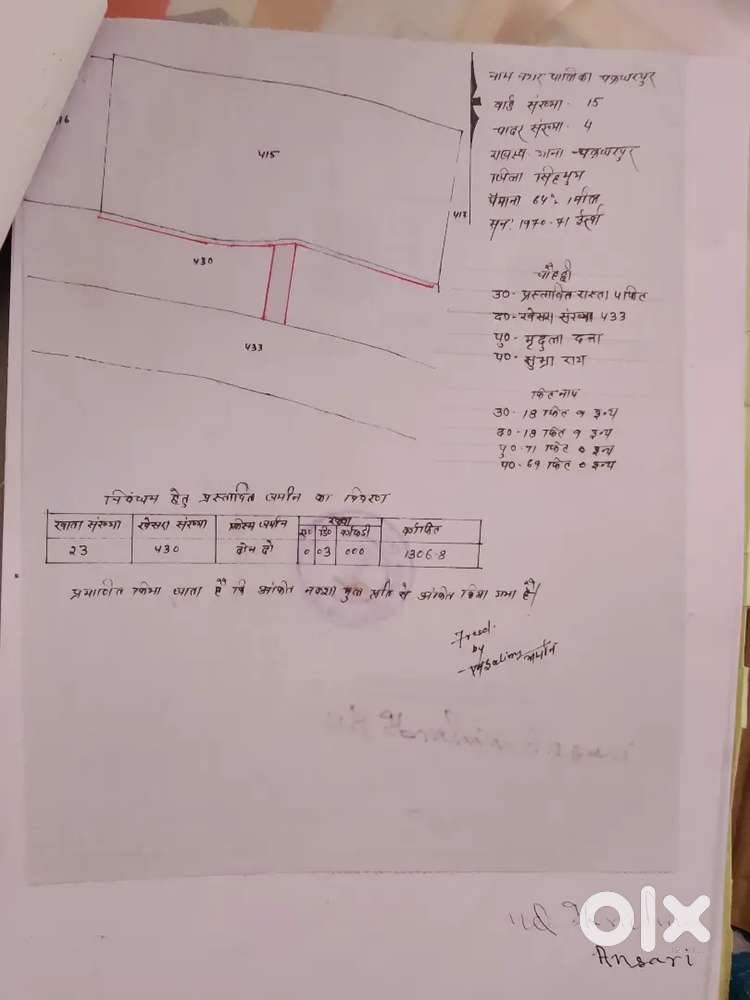 नाम नगर पालिका चक्रधरपुर
वार्ड संख्या- 15
चादर संख्या- 4
राजस्व थाना - चक्रधरपुर
जिला सिंहभुम
पैमाना 64"= 1 मील
सन् 1970-71 ईस्वी
416
415
417
430
433
चौहद्दी
उ०- प्रस्तावित रास्ता
द०- खेसरा संख्या 433
पु०- मृदुला दत्ता
प०- सुभ्रा राय
फिट नाप
उ०- 18 फिट 9 इन्च
द०- 18 फिट 9 इन्च
पु०- 71 फिट 0 इन्च
प०- 69 फिट 0 इन्च
निबंधन हेतु प्रस्तावित जमीन का विवरण
खाता संख्या खेसरा संख्या जमीन रकबा
ए० डि० कड़ी वर्गफिट
23 430 दो 0 03 000 1306.8
प्रमाणित किया जाता है कि अंकित नक्शा मुल प्रति से अंकित किया गया है।
by
अमीन
olx
Ansari